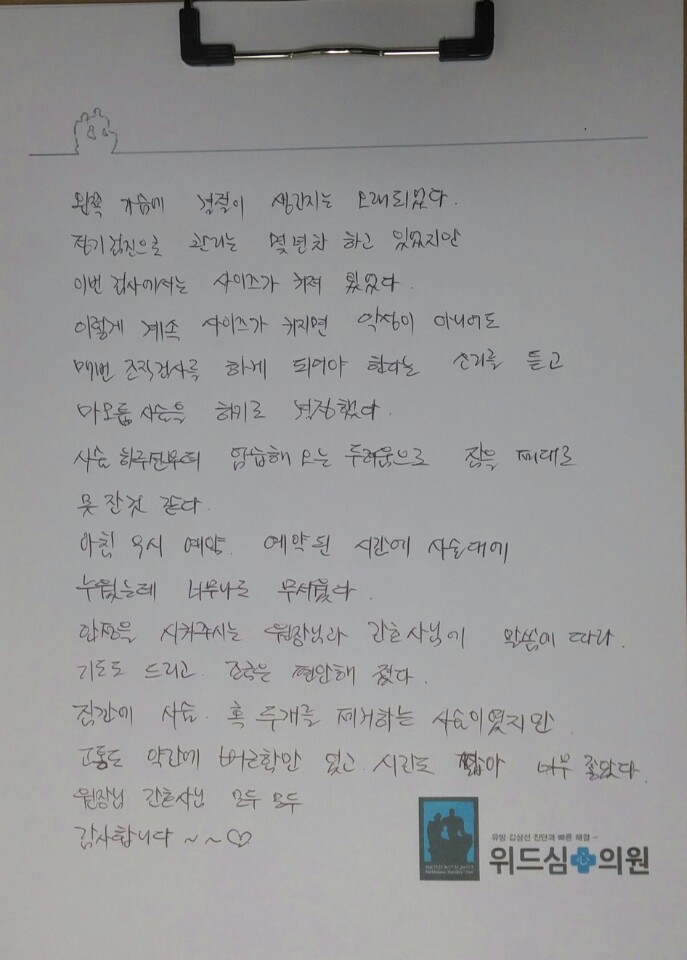 왼쪽 가슴에 결절이 생긴지는 오래되었다.
정기검진으로 관리는 몇년차 하고 있었지만
이번 검사에서는 사이즈가 커져 있었다.
이렇게 계속 사이즈가 커지면 악성이 아니어도
매번 조직검사를 하게 되어야 한다는 소리를 듣고
맘모톰 시술을 하기로 결정했다.
시술 하루전부터 엄습해 오는 두려움으로 잠을 제대로
못 잔것 같다.
아침 9시 예약. 예약된 시간에 시술대에
누웠는데 너무나도 무서웠다.
안정을 시켜주시는 원장님과 간호사님에 말씀에 따라.
기도도 드리고 조금은 편안해 졌다.
잠깐에 시술. 혹 두개를 제거하는 시술이였지만
고통도 약간에 뻐근함만 있고. 시간도 짧아 너무 좋았다.
원장님 간호사님 모두 모두
감사합니다 ~ ~ ♡
유방 갑상선 진단과 빠른 해결~
위드심의원